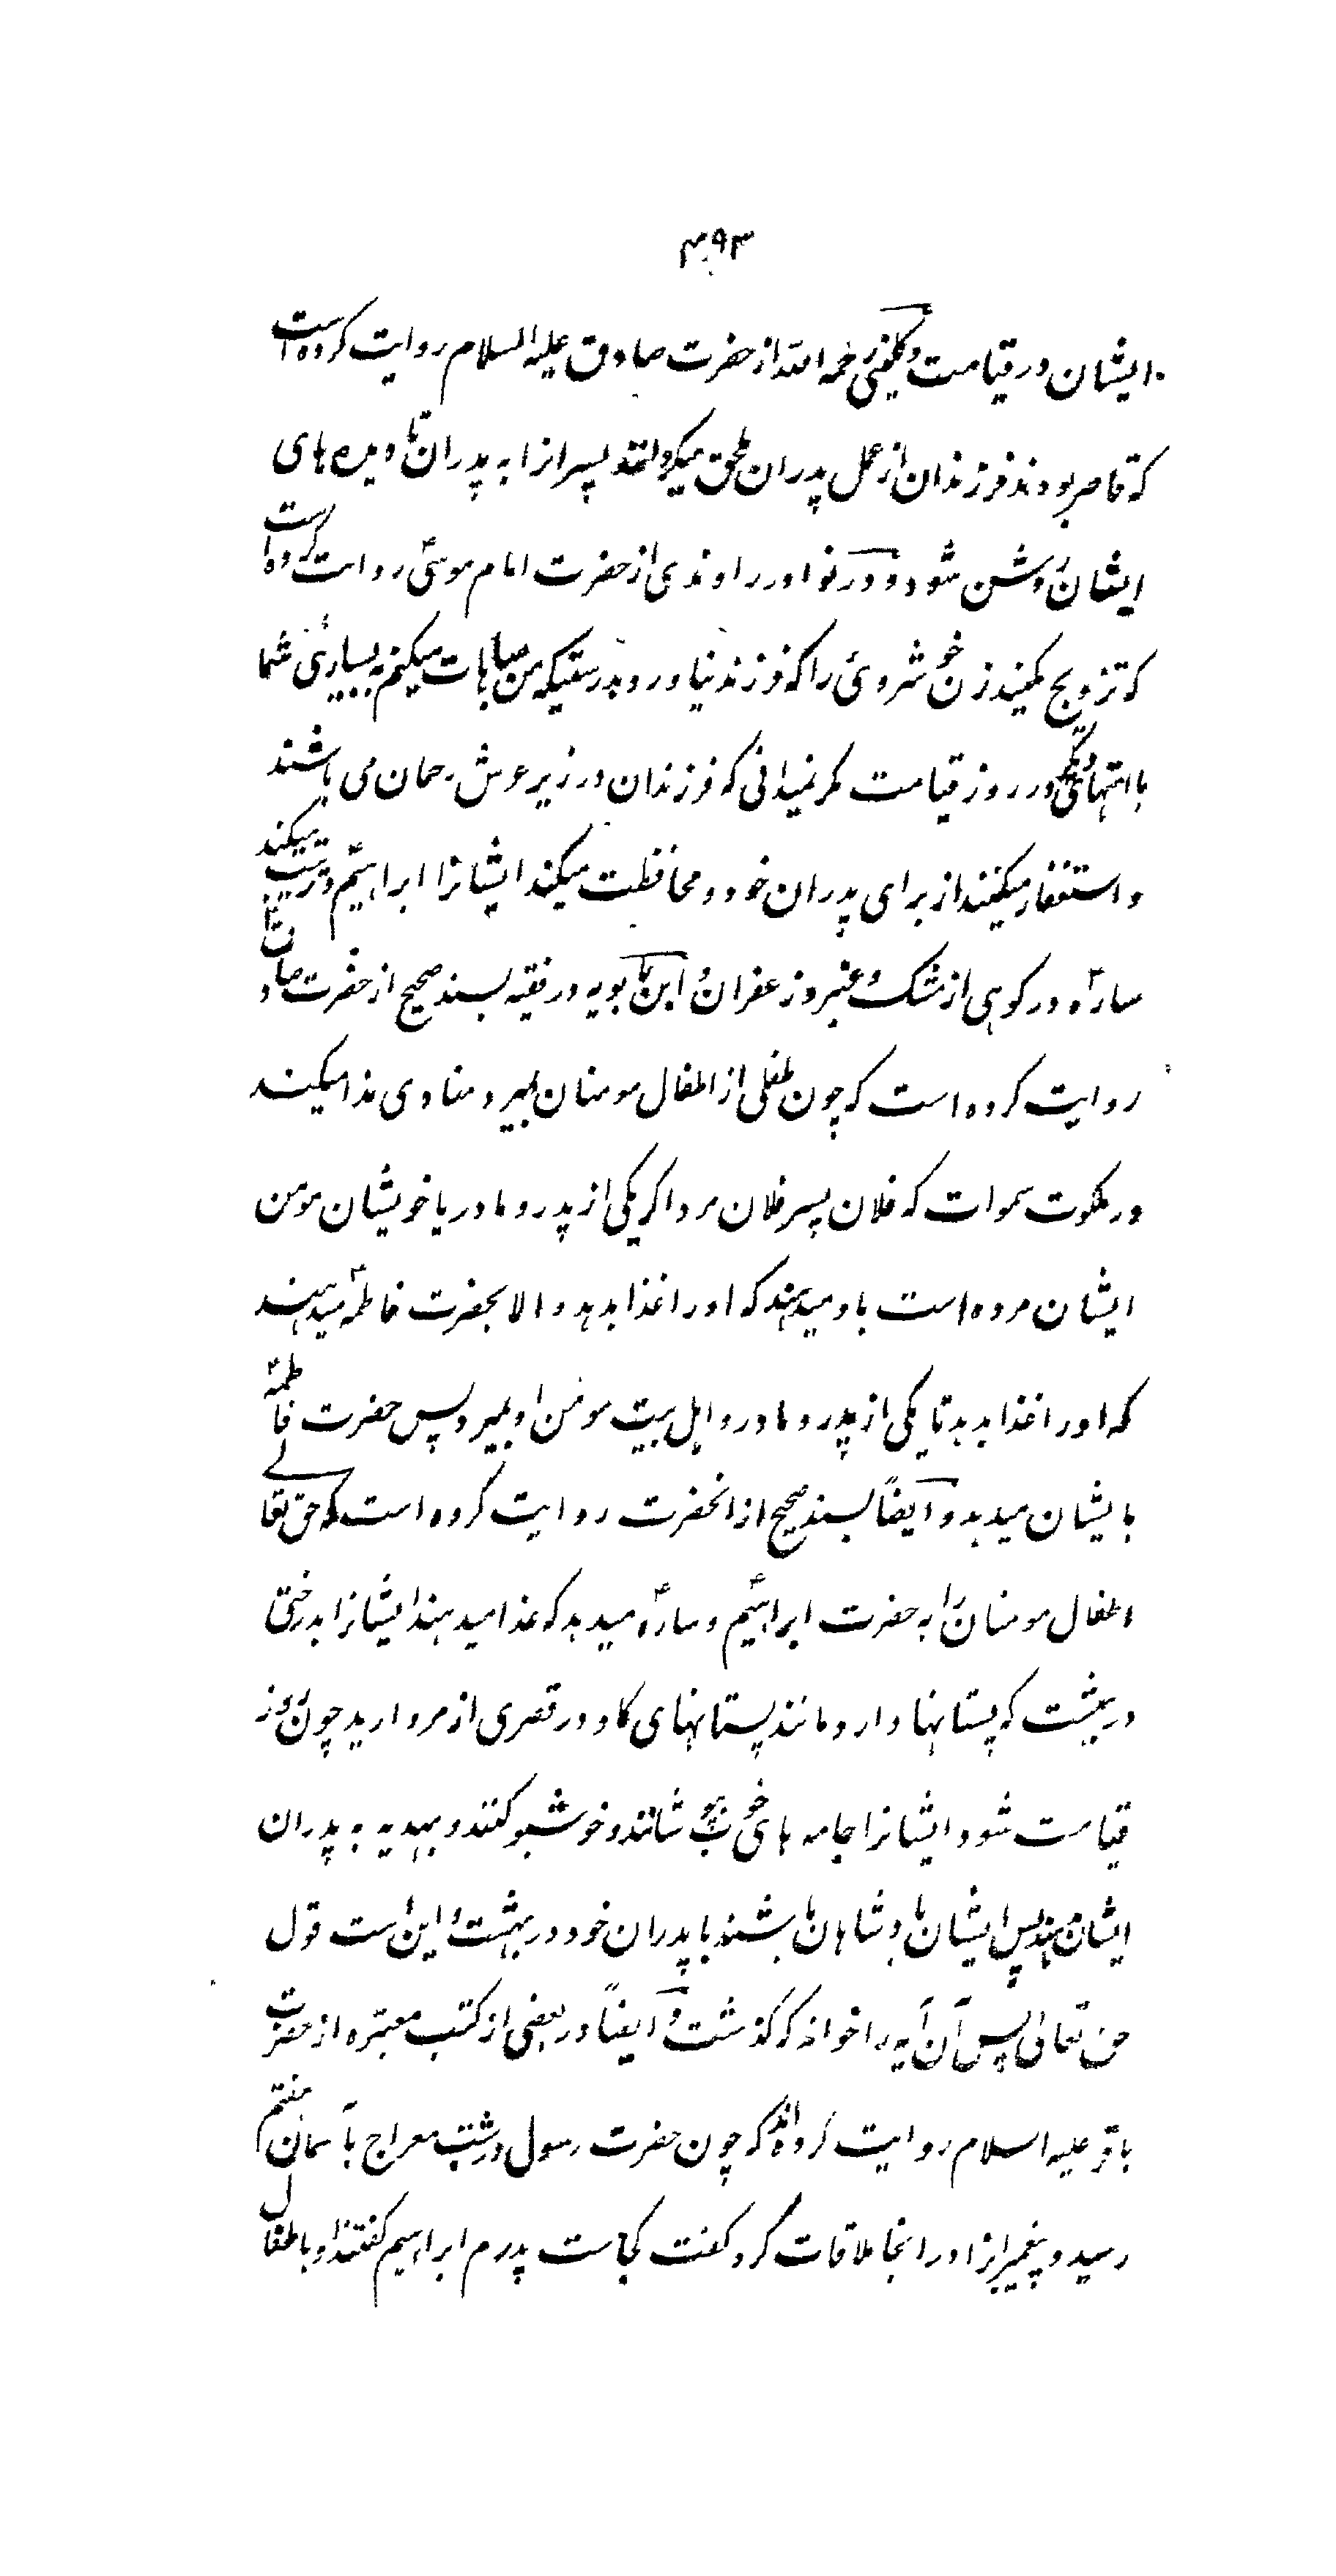 ۴۹۳
ایشان در قیامت و کلینی رحمه الله از حضرت صادق علیه السلام روایت کرده است
که قاصر بودند فرزندان از عمل پدران ملحق میگرداند پسرانرا به پدران تا دیده های
ایشان روشن شود و در نوادر راوندی از حضرت امام موسیؑ روایت کرده است
که تزویج مکنید زن خوش روئی را که فرزند نیاورد بدرستیکه من مباهات میکنم به بسیاری شما
با امتهای دیگر در روز قیامت مگر نمیدانی که فرزندان در زیر عرش رحمان می باشند
و استغفار میکنند از برای پدران خود و محافظت میکند ایشانرا ابراهیمؑ و تربیت میکند
سارهؑ در کوهی از مشک و عنبر و زعفران و ابن بابویه در فقیه بسند صحیح از حضرت صادقؑ
روایت کرده است که چون طفلی از اطفال مومنان بمیرد منادی ندا میکند
در ملکوت سموات که فلان پسر فلان مرد اگر یکی از پدر و مادر یا خویشان مومن
ایشان مرده است باو میدهند که او را غذا بدهد و الا بحضرت فاطمهؑ میدهند
که او را غذا بدهد تا یکی از پدر و مادر و اهل بیت مومن او بمیرد پس حضرت فاطمهؑ
بایشان میدهد و ایضاً بسند صحیح از انحضرت روایت کرده است که حق تعالے
اطفال مومنان را به حضرت ابراهیمؑ و سارهؑ میدهد که غذا میدهند ایشانرا بدرختی
در بهشت که پستانها دارد مانند پستانهای گاو در قصری از مروارید چون روز
قیامت شود ایشانرا جامه های خوب بپوشانند و خوشبو کنند و بهدیه به پدران
ایشان دهند پس ایشان پادشاهان باشند با پدران خود در بهشت و این است قول
حق تعالی پس آن آیه را خواند که گذشت و ایضاً در بعضی از کتب معتبره از حضرت
باقر علیه السلام روایت کرده اند که چون حضرت رسول در شب معراج بآسمان هفتم
رسید و پیغمبرانرا در انجا ملاقات کرد گفت کجاست پدرم ابراهیم گفتند او با اطفال